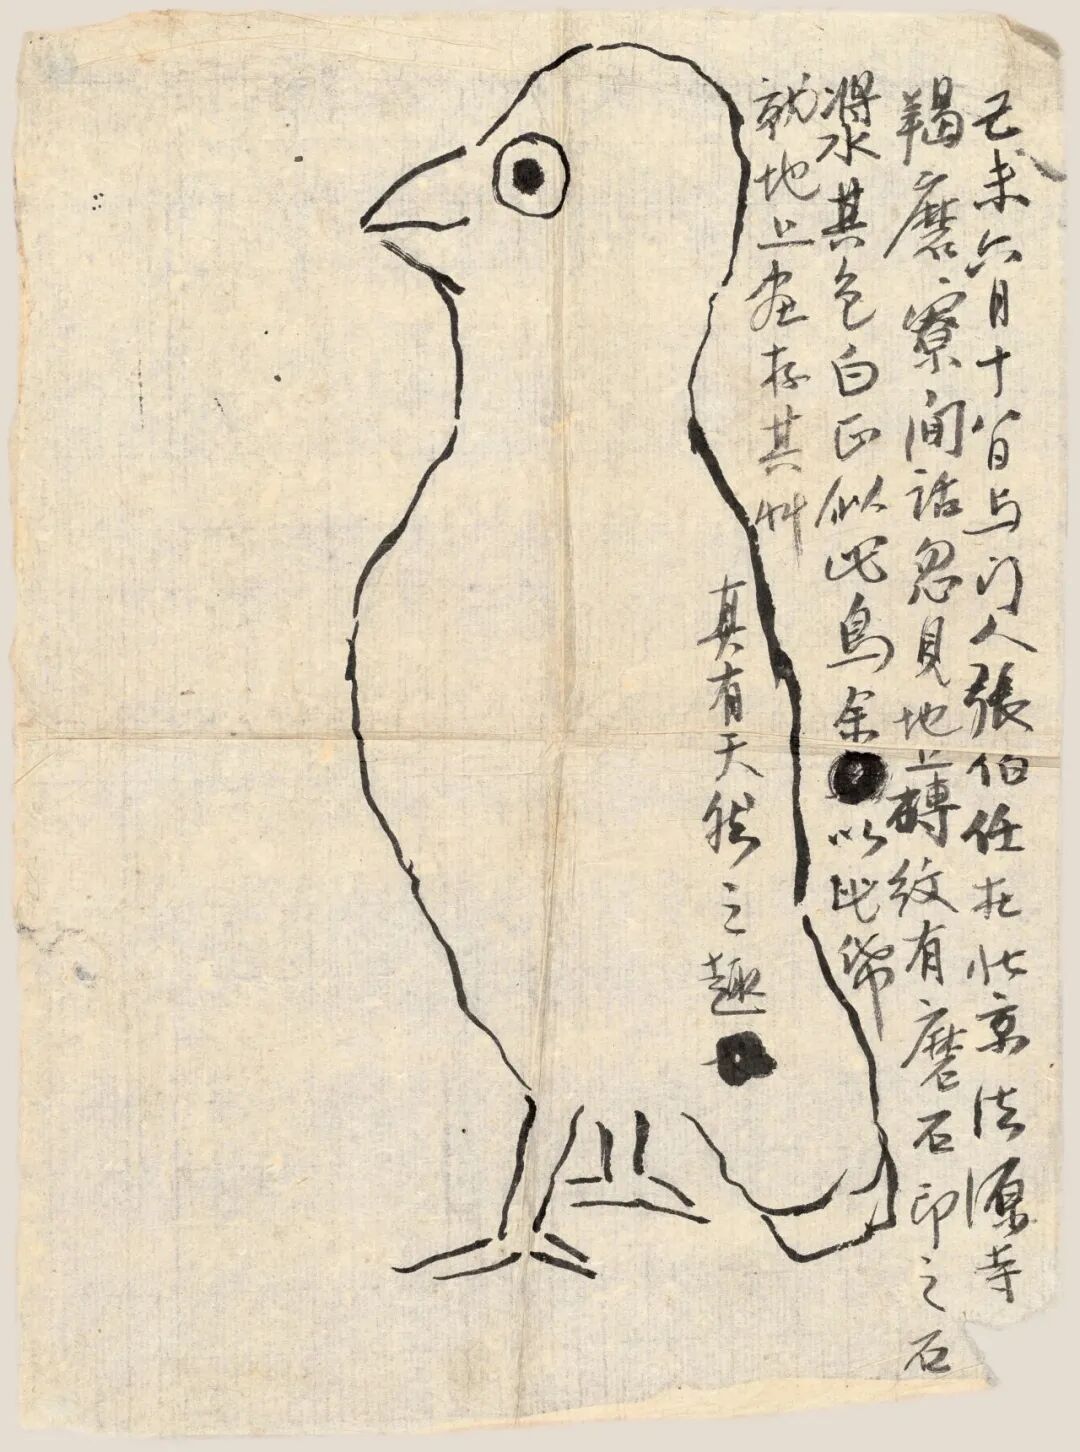 己未六月十八日与门人張伯任在北京法源寺
羯磨寮闲話忽見地上磚紋有磨石印之石
漿水其色白正似此鳥余以此紙
就地上画存其草
真有天然之趣